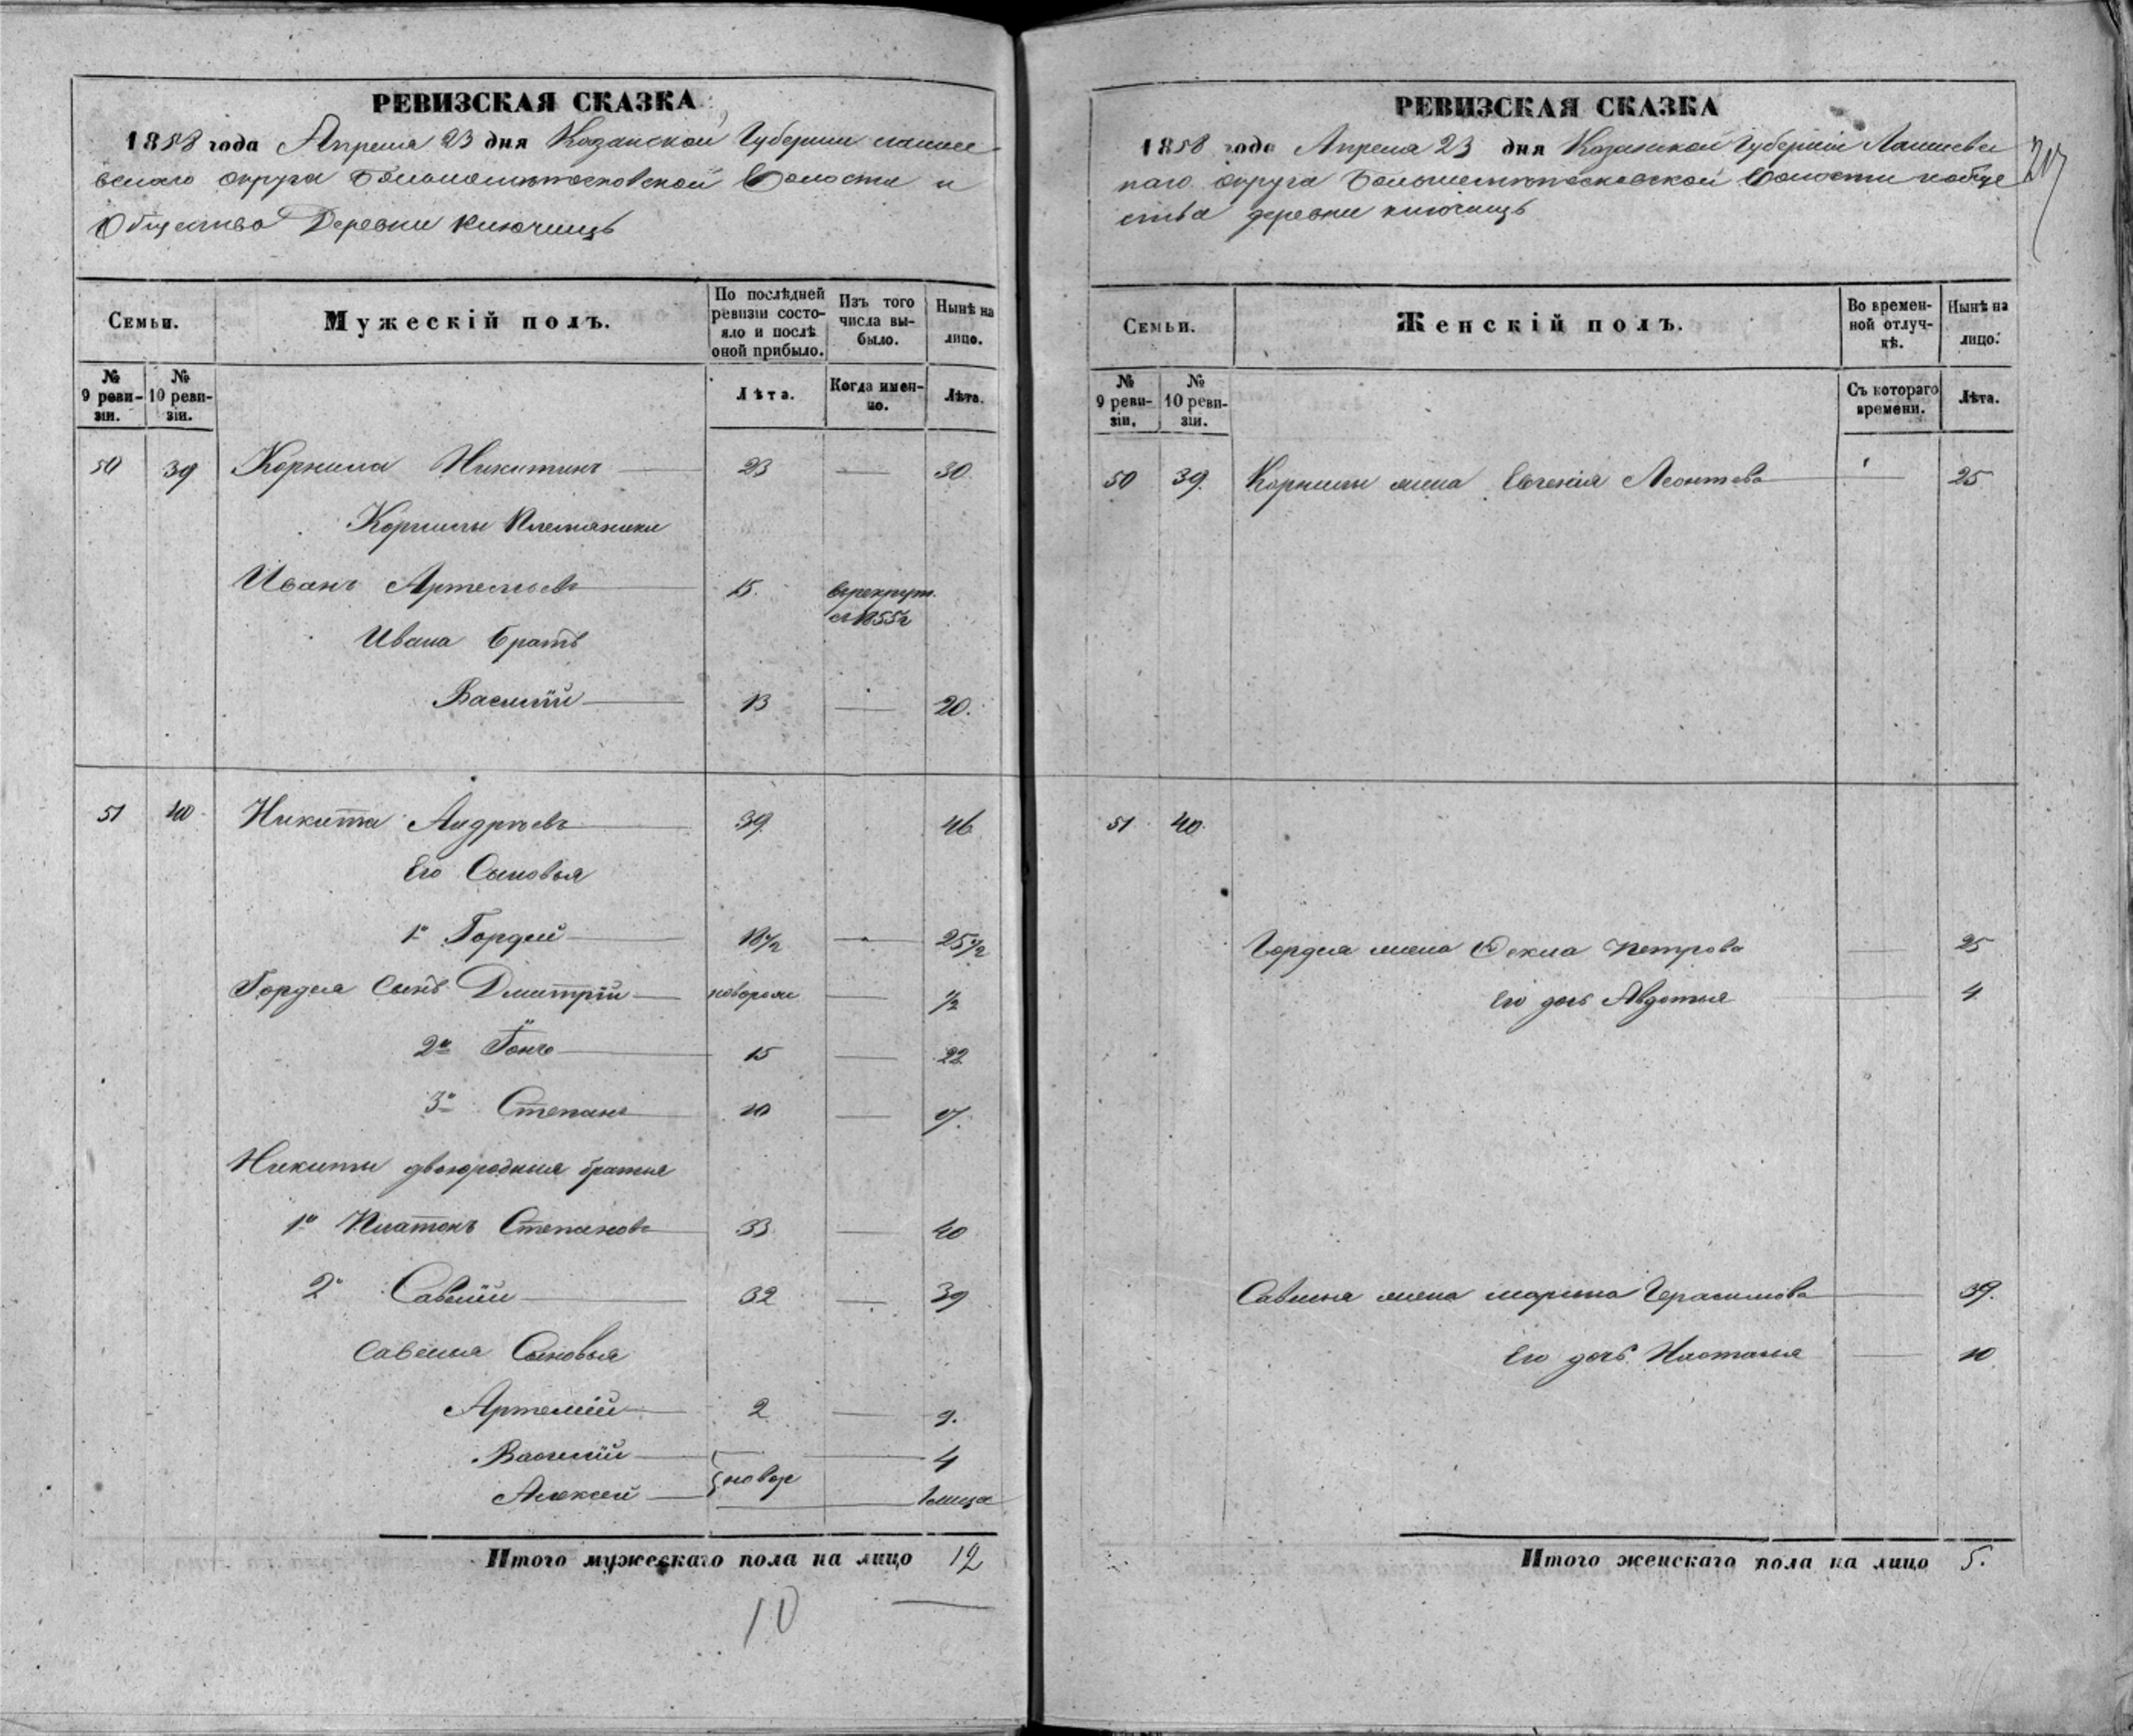 РЕВИЗСКАЯ СКАЗКА
1858 года Апреля 23 дня Казанской Губернии Лаише
вскаго округа Волости и
Общества Деревни Ключищъ
Семьи.
Мужескій полъ.
По послѣдней ревизіи состояло и послѣ оной прибыло.
Изъ того числа выбыло.
Нынѣ на лицо.
№ 9 ревизіи.
№ 10 ревизіи.
Лѣта.
Когда именно.
Лѣта.
50 39 Корнила Никитинъ 23 — 30
Корнилы Племяники
Иванъ Артемьевъ 15. врекрут. въ 1855г
Ивана братъ
Василій 13 — 20.
51 40 Никита Андрѣевъ 39 46
Его Сыновья
1й Гордей 18 1/2 — 25 1/2
Гордея Сынъ Дмитрій новорож — 1/2
2й 15 — 22
3й Степанъ 10 — 17.
Никиты двоюродныя братья
1й Платонъ Степановъ 33 — 40
2й Савелій 32 — 39
Савелья Сыновья
Артемій 2 — 9.
Василій — новор — 4
Алексей —
Итого мужескаго пола на лицо 12
10
РЕВИЗСКАЯ СКАЗКА
1858 года Апреля 23 дня Казанской Губерніи Лаишевс
каго округа Волости и обще
ства деревни ключищъ
Семьи.
Женскій полъ.
Во временной отлучкѣ.
Нынѣ на лицо.
№ 9 ревизіи.
№ 10 ревизіи.
Съ котораго времени.
Лѣта.
50 39. Корнилы жена Евгенія Леонтева — 25
51 40.
Гордея жена Фекла Петрова — 25
Его дочь Авдотья — 4
Савелья жена марина Герасимова — 39.
Его дочь Настасья — 10
Итого женскаго пола на лицо 5.